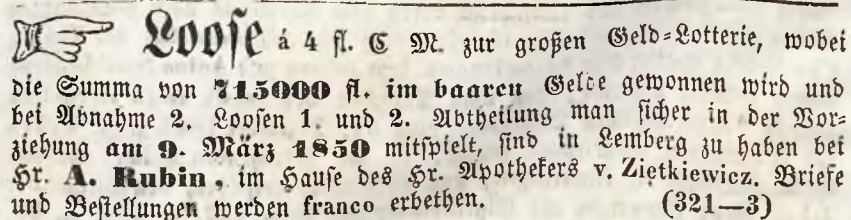 ☞ Loose á 4 fl. C M. zur großen Geld=Lotterie, wobei
die Summa von 715000 fl. im baaren Gelde gewonnen wird und
bei Abnahme 2. Loosen 1. und 2. Abtheilung man sicher in der Vor=
ziehung am 9. März 1850 mitspielt, sind in Lemberg zu haben bei
Hr. A. Rubin, im Hause des Hr. Apothekers v. Ziętkiewicz. Briefe
und Bestellungen werden franco erbethen. (321—3)